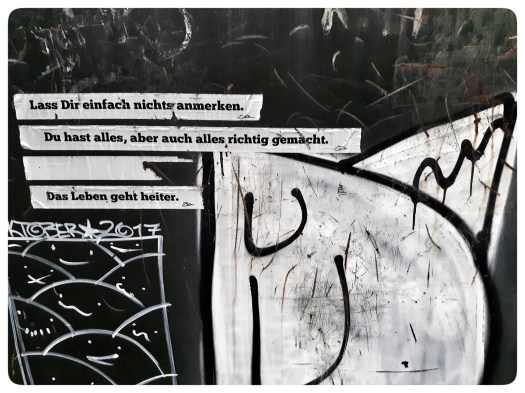 Lass Dir einfach nichts anmerken.
Du hast alles, aber auch alles richtig gemacht.
Das Leben geht heiter.
KTOBER★2017